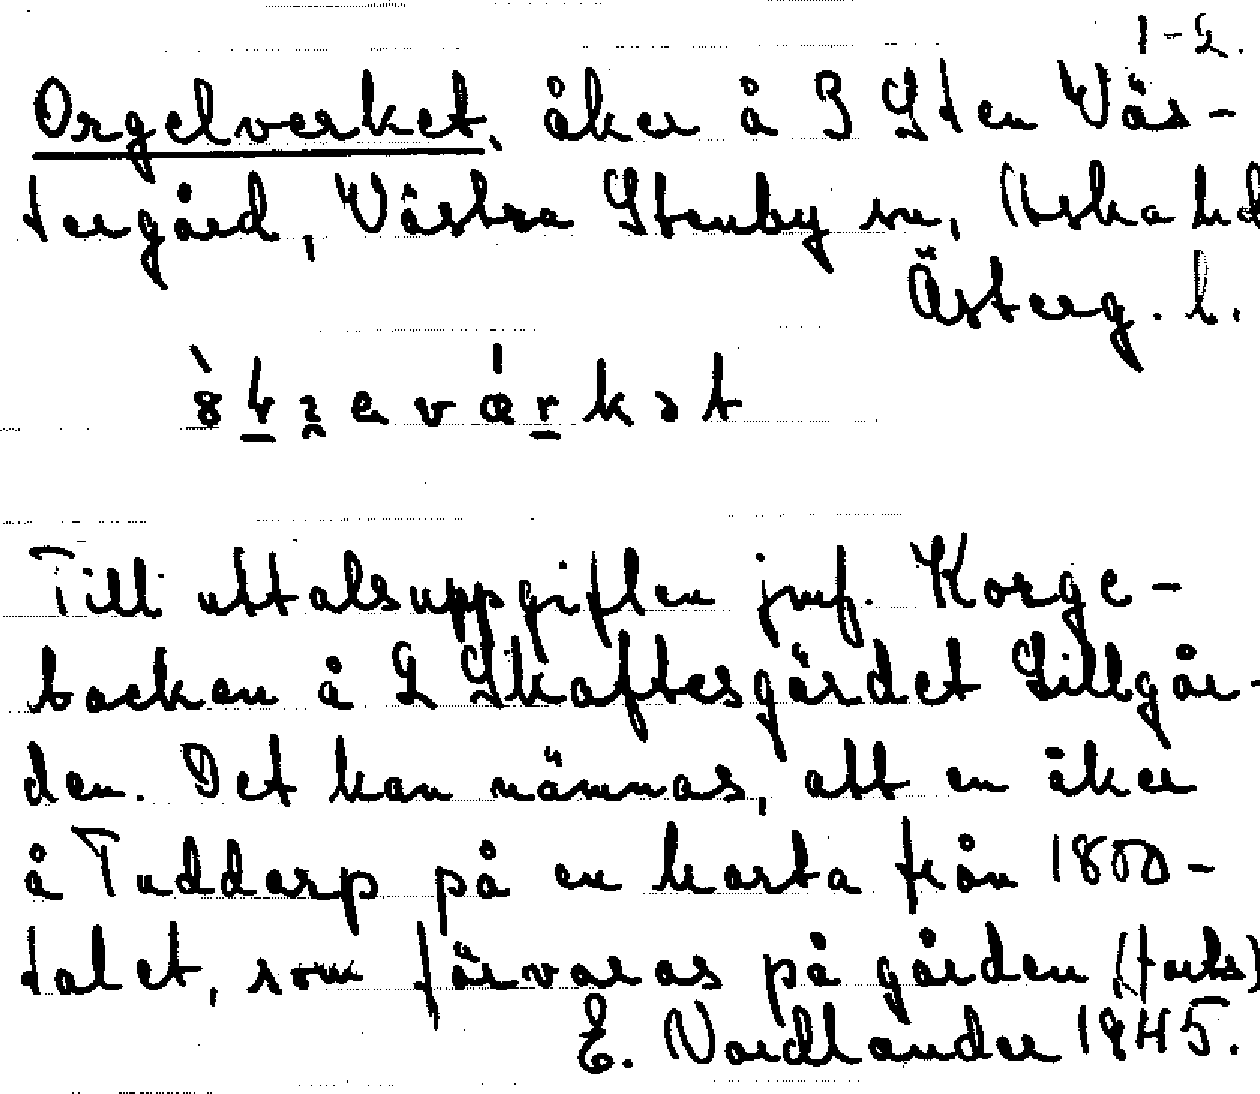 1-2.
Orgelverket, åker å 3 Sten Väs-
tergård, Västra Stenby sn, Aska hd
Österg. l.
Till uttalsuppgiften jmf. Korge-
backen å 2 Skaftesgärdet Lillgår-
den. Det kan nämnas, att en åker
å Tuddarp på en karta från 1800-
talet, som förvaras på gården (forts)
E. Nordlander 1945.